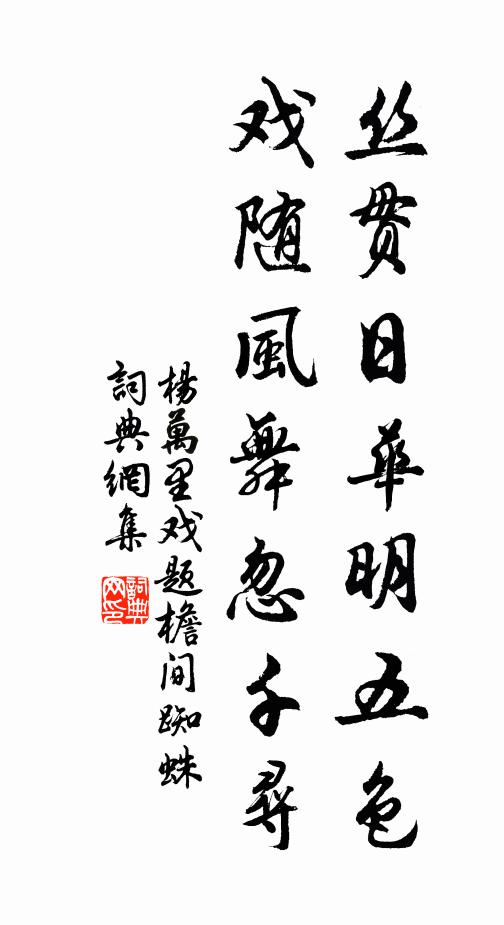 丝贯日华明五色
戏随風舞忽千尋
楊萬里戏题檐间踟蛛
詞典網集
詞典網印